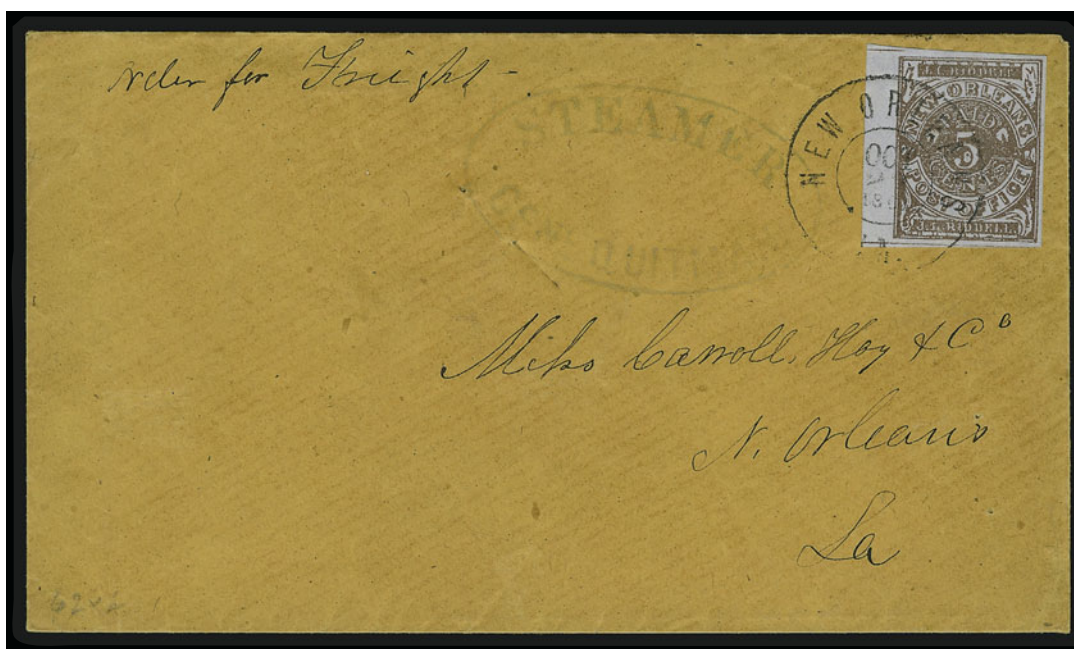 Order for Freight -
STEAMER
GEN QUITMAN
NEW OR
OC
18
J.L. RIDDELL
NEW ORLEANS
PAID
5
CENTS
POST OFFICE
J.L. RIDDELL
Mess Carroll, Hoy & Co
N. Orleans
La
62x2